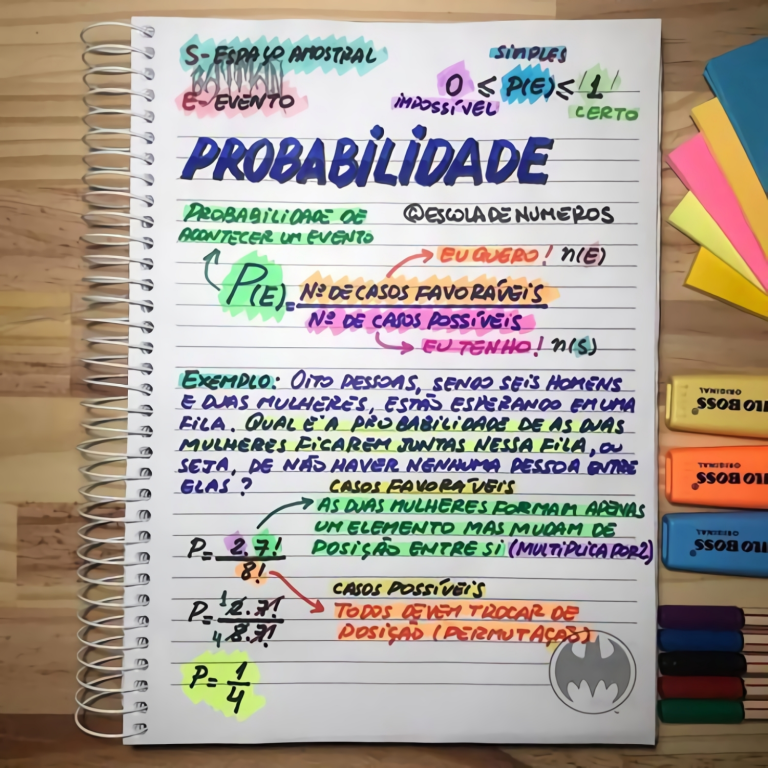 S- ESPAÇO AMOSTRAL
BATMAN
E- EVENTO
SIMPLES
0 ≤ P(E) ≤ 1
IMPOSSÍVEL
CERTO
PROBABILIDADE
PROBABILIDADE DE
ACONTECER UM EVENTO
@ESCOLADENUMEROS
EU QUERO! n(E)
P(E) = Nº DE CASOS FAVORÁVEIS
Nº DE CASOS POSSÍVEIS
EU TENHO! n(S)
EXEMPLO: OITO PESSOAS, SENDO SEIS HOMENS
E DUAS MULHERES, ESTÃO ESPERANDO EM UMA
FILA. QUAL É A PROBABILIDADE DE AS DUAS
MULHERES FICAREM JUNTAS NESSA FILA, OU
SEJA, DE NÃO HAVER NENHUMA PESSOA ENTRE
ELAS?
CASOS FAVORÁVEIS
AS DUAS MULHERES FORMAM APENAS
UM ELEMENTO MAS MUDAM DE
POSIÇÃO ENTRE SI (MULTIPLICA POR 2)
P= 2.7!
8!
CASOS POSSÍVEIS
TODOS DEVEM TROCAR DE
POSIÇÃO (PERMUTAÇÃO)
P= 1 2.7!
4 8.7!
P= 1
4
BOSS
ORIGINAL
BOSS
ORIGINAL
BOSS
ORIGINAL